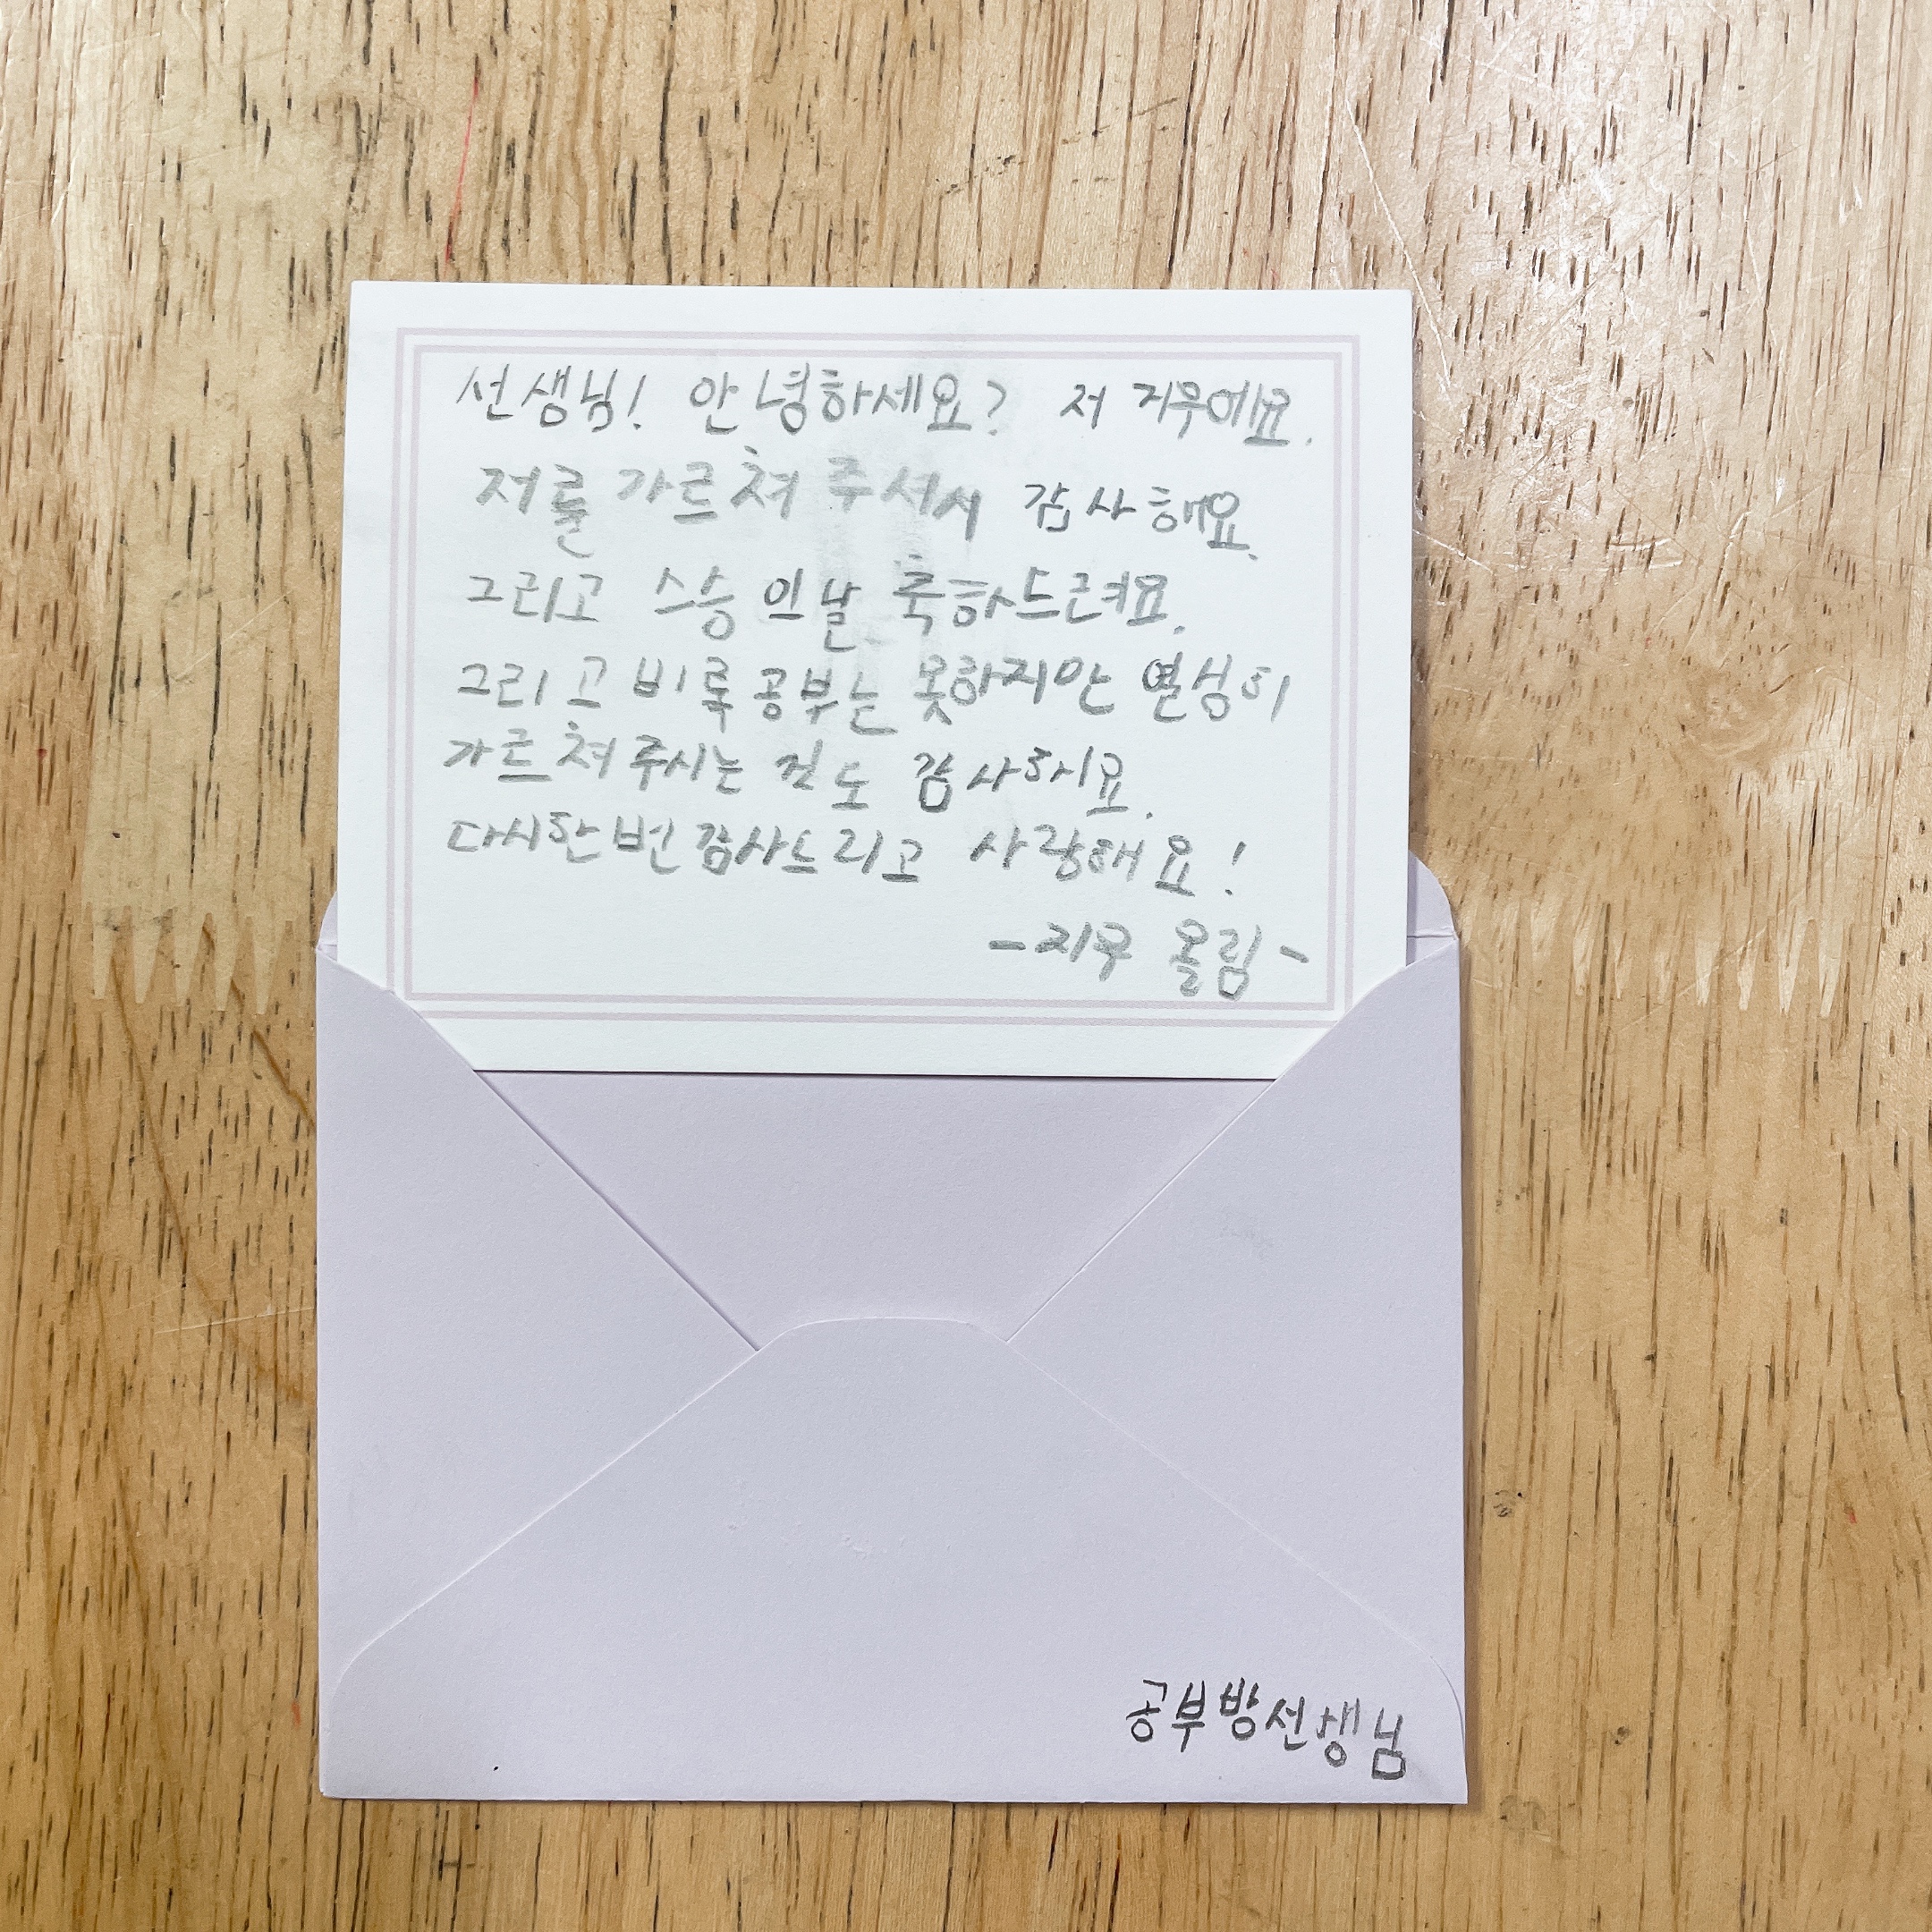 선생님! 안녕하세요? 저 지우에요.
저를 가르쳐 주셔서 감사해요.
그리고 스승의날 축하드려요.
그리고 비록 공부는 못하지만 열심히
가르쳐 주시는 것도 감사해요.
다시한번 감사드리고 사랑해요!
-지우 올림-
공부방선생님